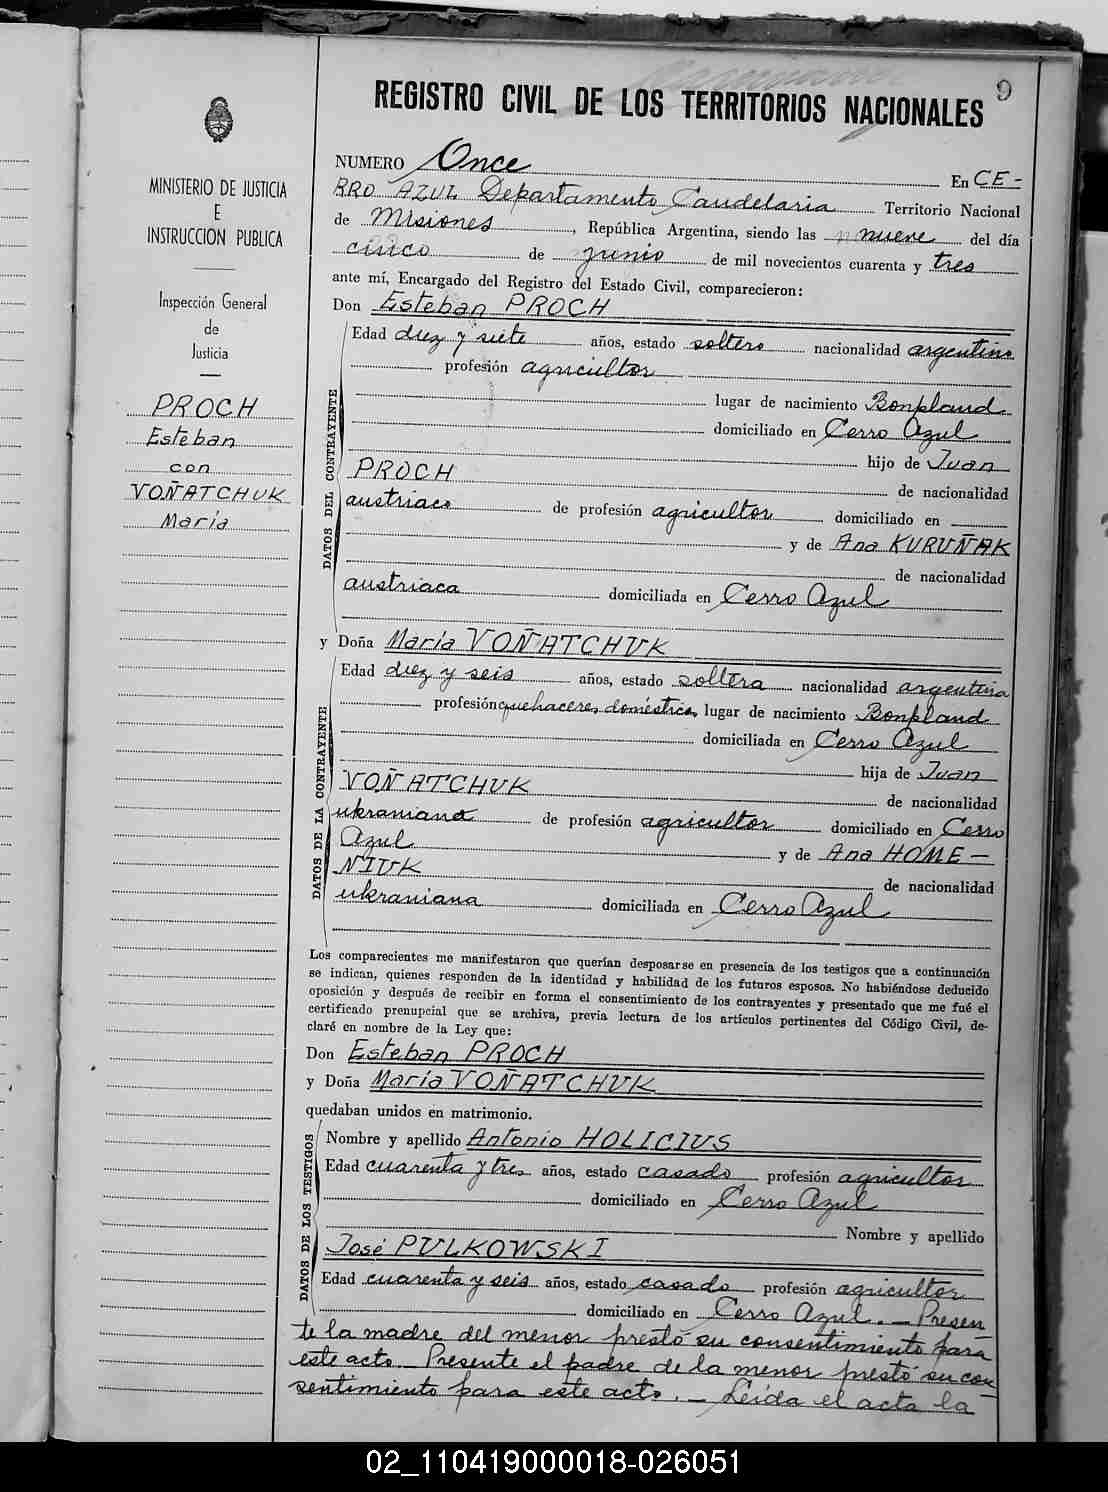 9
REGISTRO CIVIL DE LOS TERRITORIOS NACIONALES
MINISTERIO DE JUSTICIA
E
INSTRUCCION PUBLICA
Inspección General
de
Justicia
PROCH
Esteban
con
VOÑATCHUK
María
NUMERO Once En CE-
RRO AZUL Departamento Candelaria Territorio Nacional
de Misiones, República Argentina, siendo las nueve del día
cinco de junio de mil novecientos cuarenta y tres
ante mí, Encargado del Registro del Estado Civil, comparecieron:
Don Esteban PROCH
DATOS DEL CONTRAYENTE
Edad diez y siete años, estado soltero nacionalidad argentino
profesión agricultor
lugar de nacimiento Bonpland
domiciliado en Cerro Azul
hijo de Juan
PROCH de nacionalidad
austriaco de profesión agricultor domiciliado en
y de Ana KURUÑAK
de nacionalidad
austriaca domiciliada en Cerro Azul
y Doña María VOÑATCHUK
DATOS DE LA CONTRAYENTE
Edad diez y seis años, estado soltera nacionalidad argentina
profesión quehaceres domésticos lugar de nacimiento Bonpland
domiciliada en Cerro Azul
hija de Juan
VOÑATCHUK de nacionalidad
ukraniana de profesión agricultor domiciliado en Cerro
Azul y de Ana HOME-
NIUK de nacionalidad
ukraniana domiciliada en Cerro Azul
Los comparecientes me manifestaron que querían desposarse en presencia de los testigos que a continuación
se indican, quienes responden de la identidad y habilidad de los futuros esposos. No habiéndose deducido
oposición y después de recibir en forma el consentimiento de los contrayentes y presentado que me fué el
certificado prenupcial que se archiva, previa lectura de los artículos pertinentes del Código Civil, de-
claré en nombre de la Ley que:
Don Esteban PROCH
y Doña María VOÑATCHUK
quedaban unidos en matrimonio.
DATOS DE LOS TESTIGOS
Nombre y apellido Antonio HOLICIUS
Edad cuarenta y tres años, estado casado profesión agricultor
domiciliado en Cerro Azul
Nombre y apellido
José PULKOWSKI
Edad cuarenta y seis años, estado casado profesión agricultor
domiciliado en Cerro Azul. — Presen
te la madre del menor prestó su consentimiento para
este acto. — Presente el padre de la menor prestó su con
sentimiento para este acto. — Leída el acta la
02_110419000018-026051